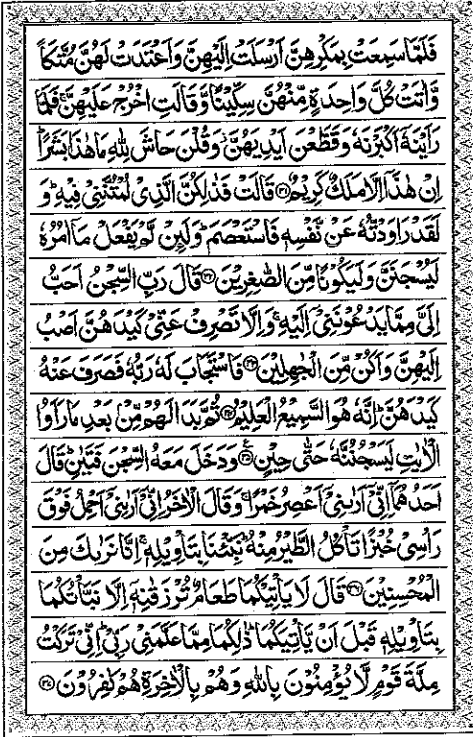 فَلَمَّا سَمِعَتْ بِمَكْرِهِنَّ اَرْسَلَتْ اِلَيْهِنَّ وَاَعْتَدَتْ لَهُنَّ مُتَّكَاً
وَّاٰتَتْ كُلَّ وَاحِدَةٍ مِّنْهُنَّ سِكِّيْنًا وَّقَالَتِ اخْرُجْ عَلَيْهِنَّ ۚ فَلَمَّا
رَاَيْنَهٗۤ اَكْبَرْنَهٗ وَقَطَّعْنَ اَيْدِيَهُنَّ وَقُلْنَ حَاشَ لِلّٰهِ مَا هٰذَا بَشَرًا ؕ
اِنْ هٰذَاۤ اِلَّا مَلَكٌ كَرِيْمٌ ﴿۳۱﴾ قَالَتْ فَذٰلِكُنَّ الَّذِيْ لُمْتُنَّنِيْ فِيْهِ ؕ وَ
لَقَدْ رَاوَدْتُّهٗ عَنْ نَّفْسِهٖ فَاسْتَعْصَمَ ؕ وَلَىِٕنْ لَّمْ يَفْعَلْ مَاۤ اٰمُرُهٗ
لَيُسْجَنَنَّ وَلَيَكُوْنًا مِّنَ الصّٰغِرِيْنَ ﴿۳۲﴾ قَالَ رَبِّ السِّجْنُ اَحَبُّ
اِلَيَّ مِمَّا يَدْعُوْنَنِيْۤ اِلَيْهِ ۚ وَاِلَّا تَصْرِفْ عَنِّيْ كَيْدَهُنَّ اَصْبُ
اِلَيْهِنَّ وَاَكُنْ مِّنَ الْجٰهِلِيْنَ ﴿۳۳﴾ فَاسْتَجَابَ لَهٗ رَبُّهٗ فَصَرَفَ عَنْهُ
كَيْدَهُنَّ ؕ اِنَّهٗ هُوَ السَّمِيْعُ الْعَلِيْمُ ﴿۳۴﴾ ثُمَّ بَدَا لَهُمْ مِّنْۢ بَعْدِ مَا رَاَوُا
الْاٰيٰتِ لَيَسْجُنُنَّهٗ حَتّٰى حِيْنٍ ﴿۳۵﴾ وَدَخَلَ مَعَهُ السِّجْنَ فَتَيٰنِ ؕ قَالَ
اَحَدُهُمَاۤ اِنِّيْۤ اَرٰىنِيْۤ اَعْصِرُ خَمْرًا ۚ وَقَالَ الْاٰخَرُ اِنِّيْۤ اَرٰىنِيْۤ اَحْمِلُ فَوْقَ
رَاْسِيْ خُبْزًا تَاْكُلُ الطَّيْرُ مِنْهُ ؕ نَبِّئْنَا بِتَاْوِيْلِهٖ ۚ اِنَّا نَرٰىكَ مِنَ
الْمُحْسِنِيْنَ ﴿۳۶﴾ قَالَ لَا يَاْتِيْكُمَا طَعَامٌ تُرْزَقٰنِهٖۤ اِلَّا نَبَّاْتُكُمَا
بِتَاْوِيْلِهٖ قَبْلَ اَنْ يَّاْتِيَكُمَا ؕ ذٰلِكُمَا مِمَّا عَلَّمَنِيْ رَبِّيْ ؕ اِنِّيْ تَرَكْتُ
مِلَّةَ قَوْمٍ لَّا يُؤْمِنُوْنَ بِاللّٰهِ وَهُمْ بِالْاٰخِرَةِ هُمْ كٰفِرُوْنَ ﴿۳۷﴾